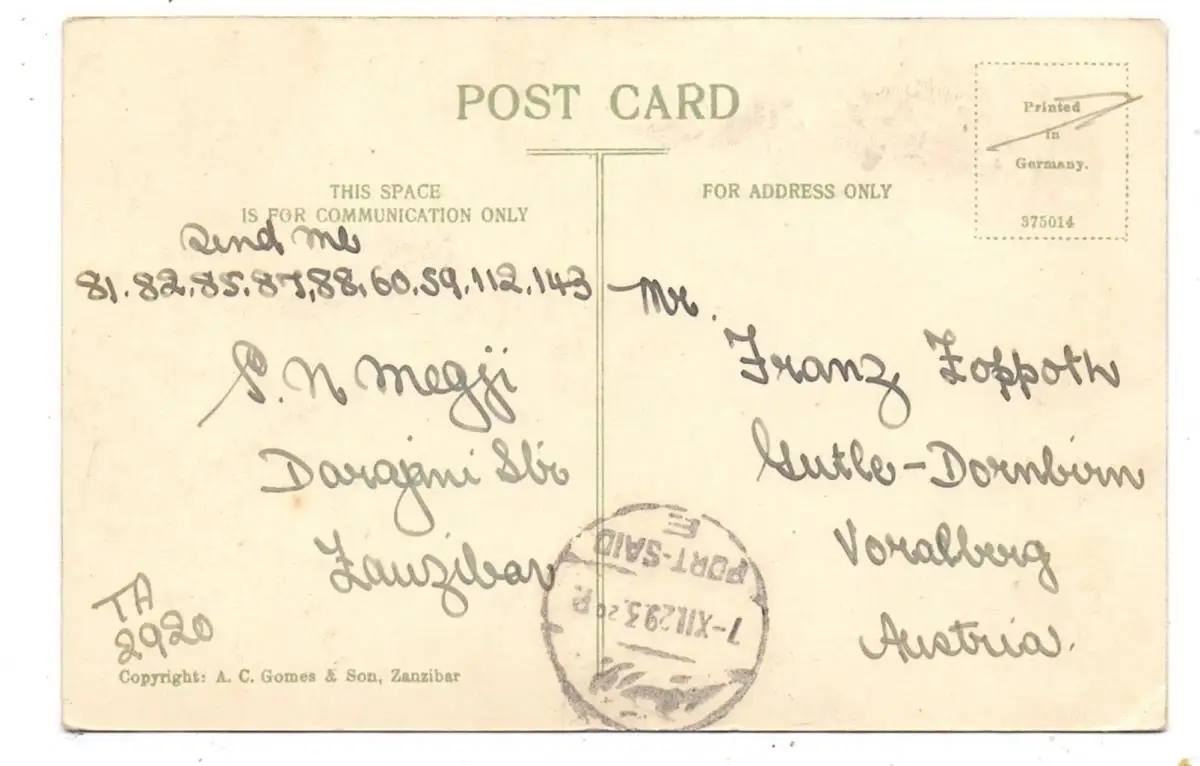 POST CARD
Printed
in
Germany.
375014
THIS SPACE
IS FOR COMMUNICATION ONLY
send me
81.82.85.87,88,60.59.112.143
S. N Megji
Darajani Str
Zanzibar
TA
2920
Copyright: A. C. Gomes & Son, Zanzibar
FOR ADDRESS ONLY
Mr.
Franz Zoppoth
Gutle-Dornbirn
Voralberg
Austria.
PORT-SAID
E
7-XII.29.3.20 P.